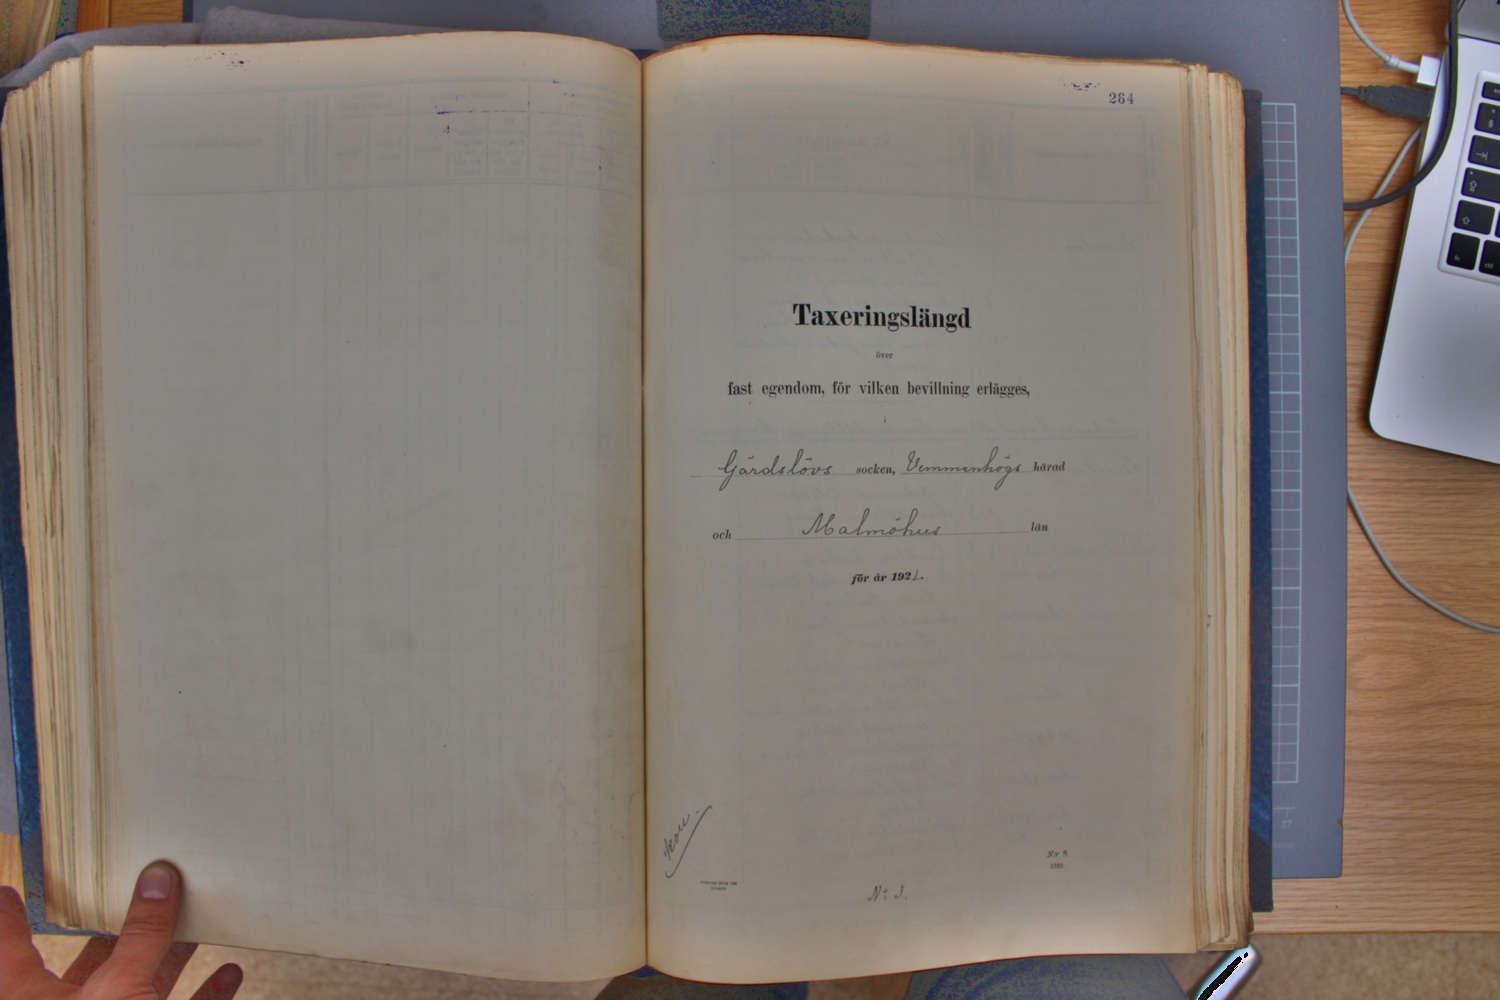 264
Taxeringslängd
över
fast egendom, för vilken bevillning erlägges,
i
Gärdslövs socken, Vemmenhögs härad
och Malmöhus län
för år 1921.
N:r 8.
1920.
No 3.
27